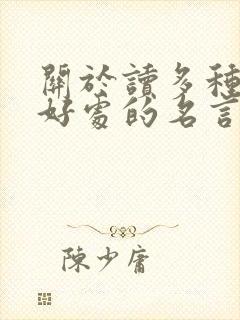 關於讀多種
好處的名言
陳少庸